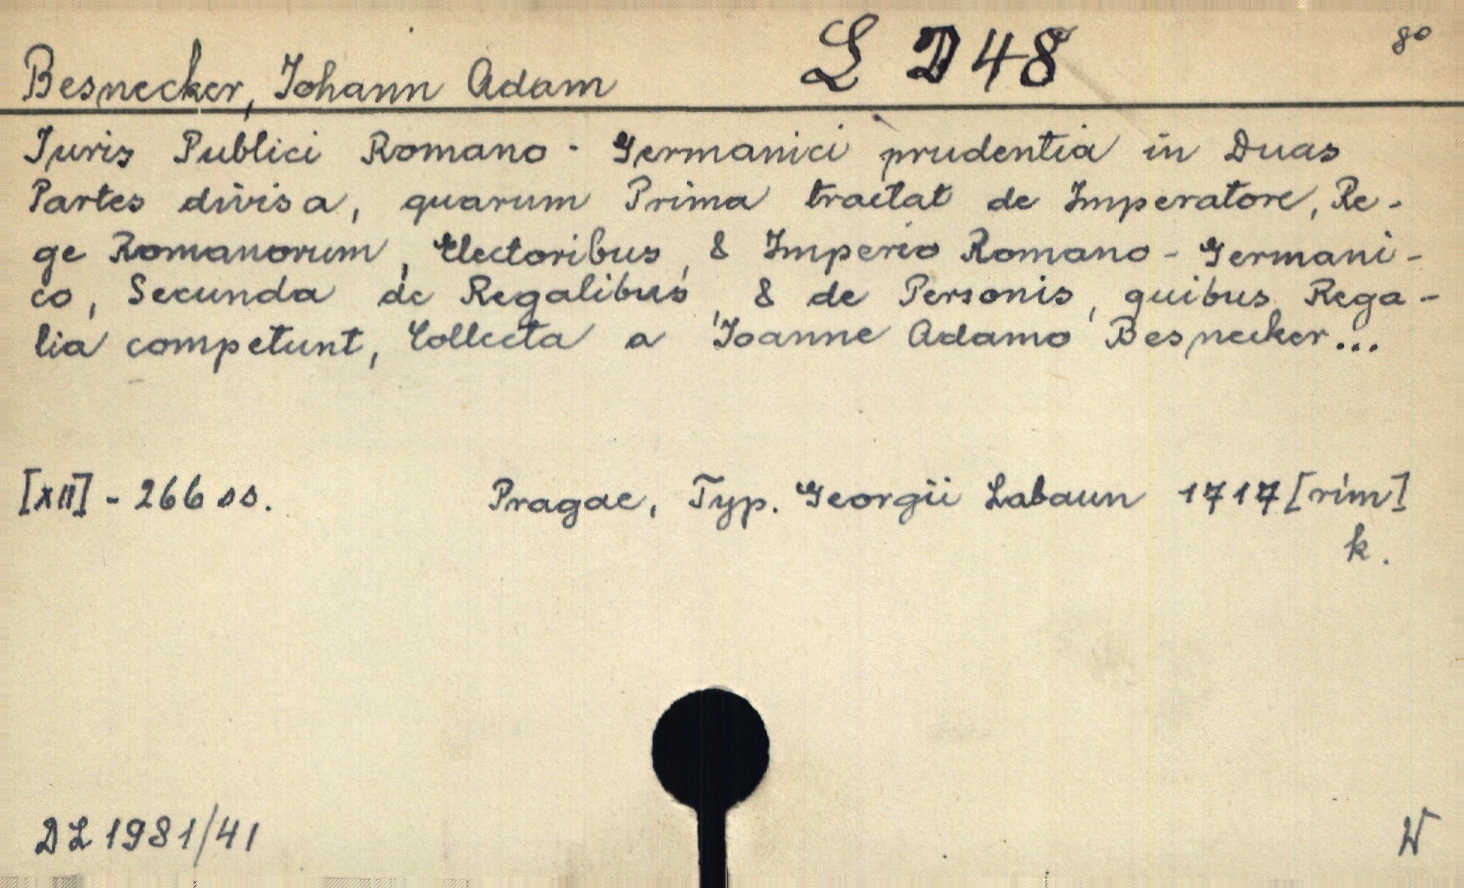 Besnecker, Johann Adam L D 48 8°
Juris Publici Romano-Germanici prudentia in Duas
Partes divisa, quarum Prima tractat de Imperatore, Re-
ge Romanorum, Electoribus, & Imperio Romano-Germani-
co, Secunda de Regalibus, & de Personis, quibus Rega-
lia competunt, Collecta a Joanne Adamo Besnecker...
[XII] - 266 ss. Pragae, Typ. Georgii Labaun 1717 [rim]
k.
DL 1981/41 W